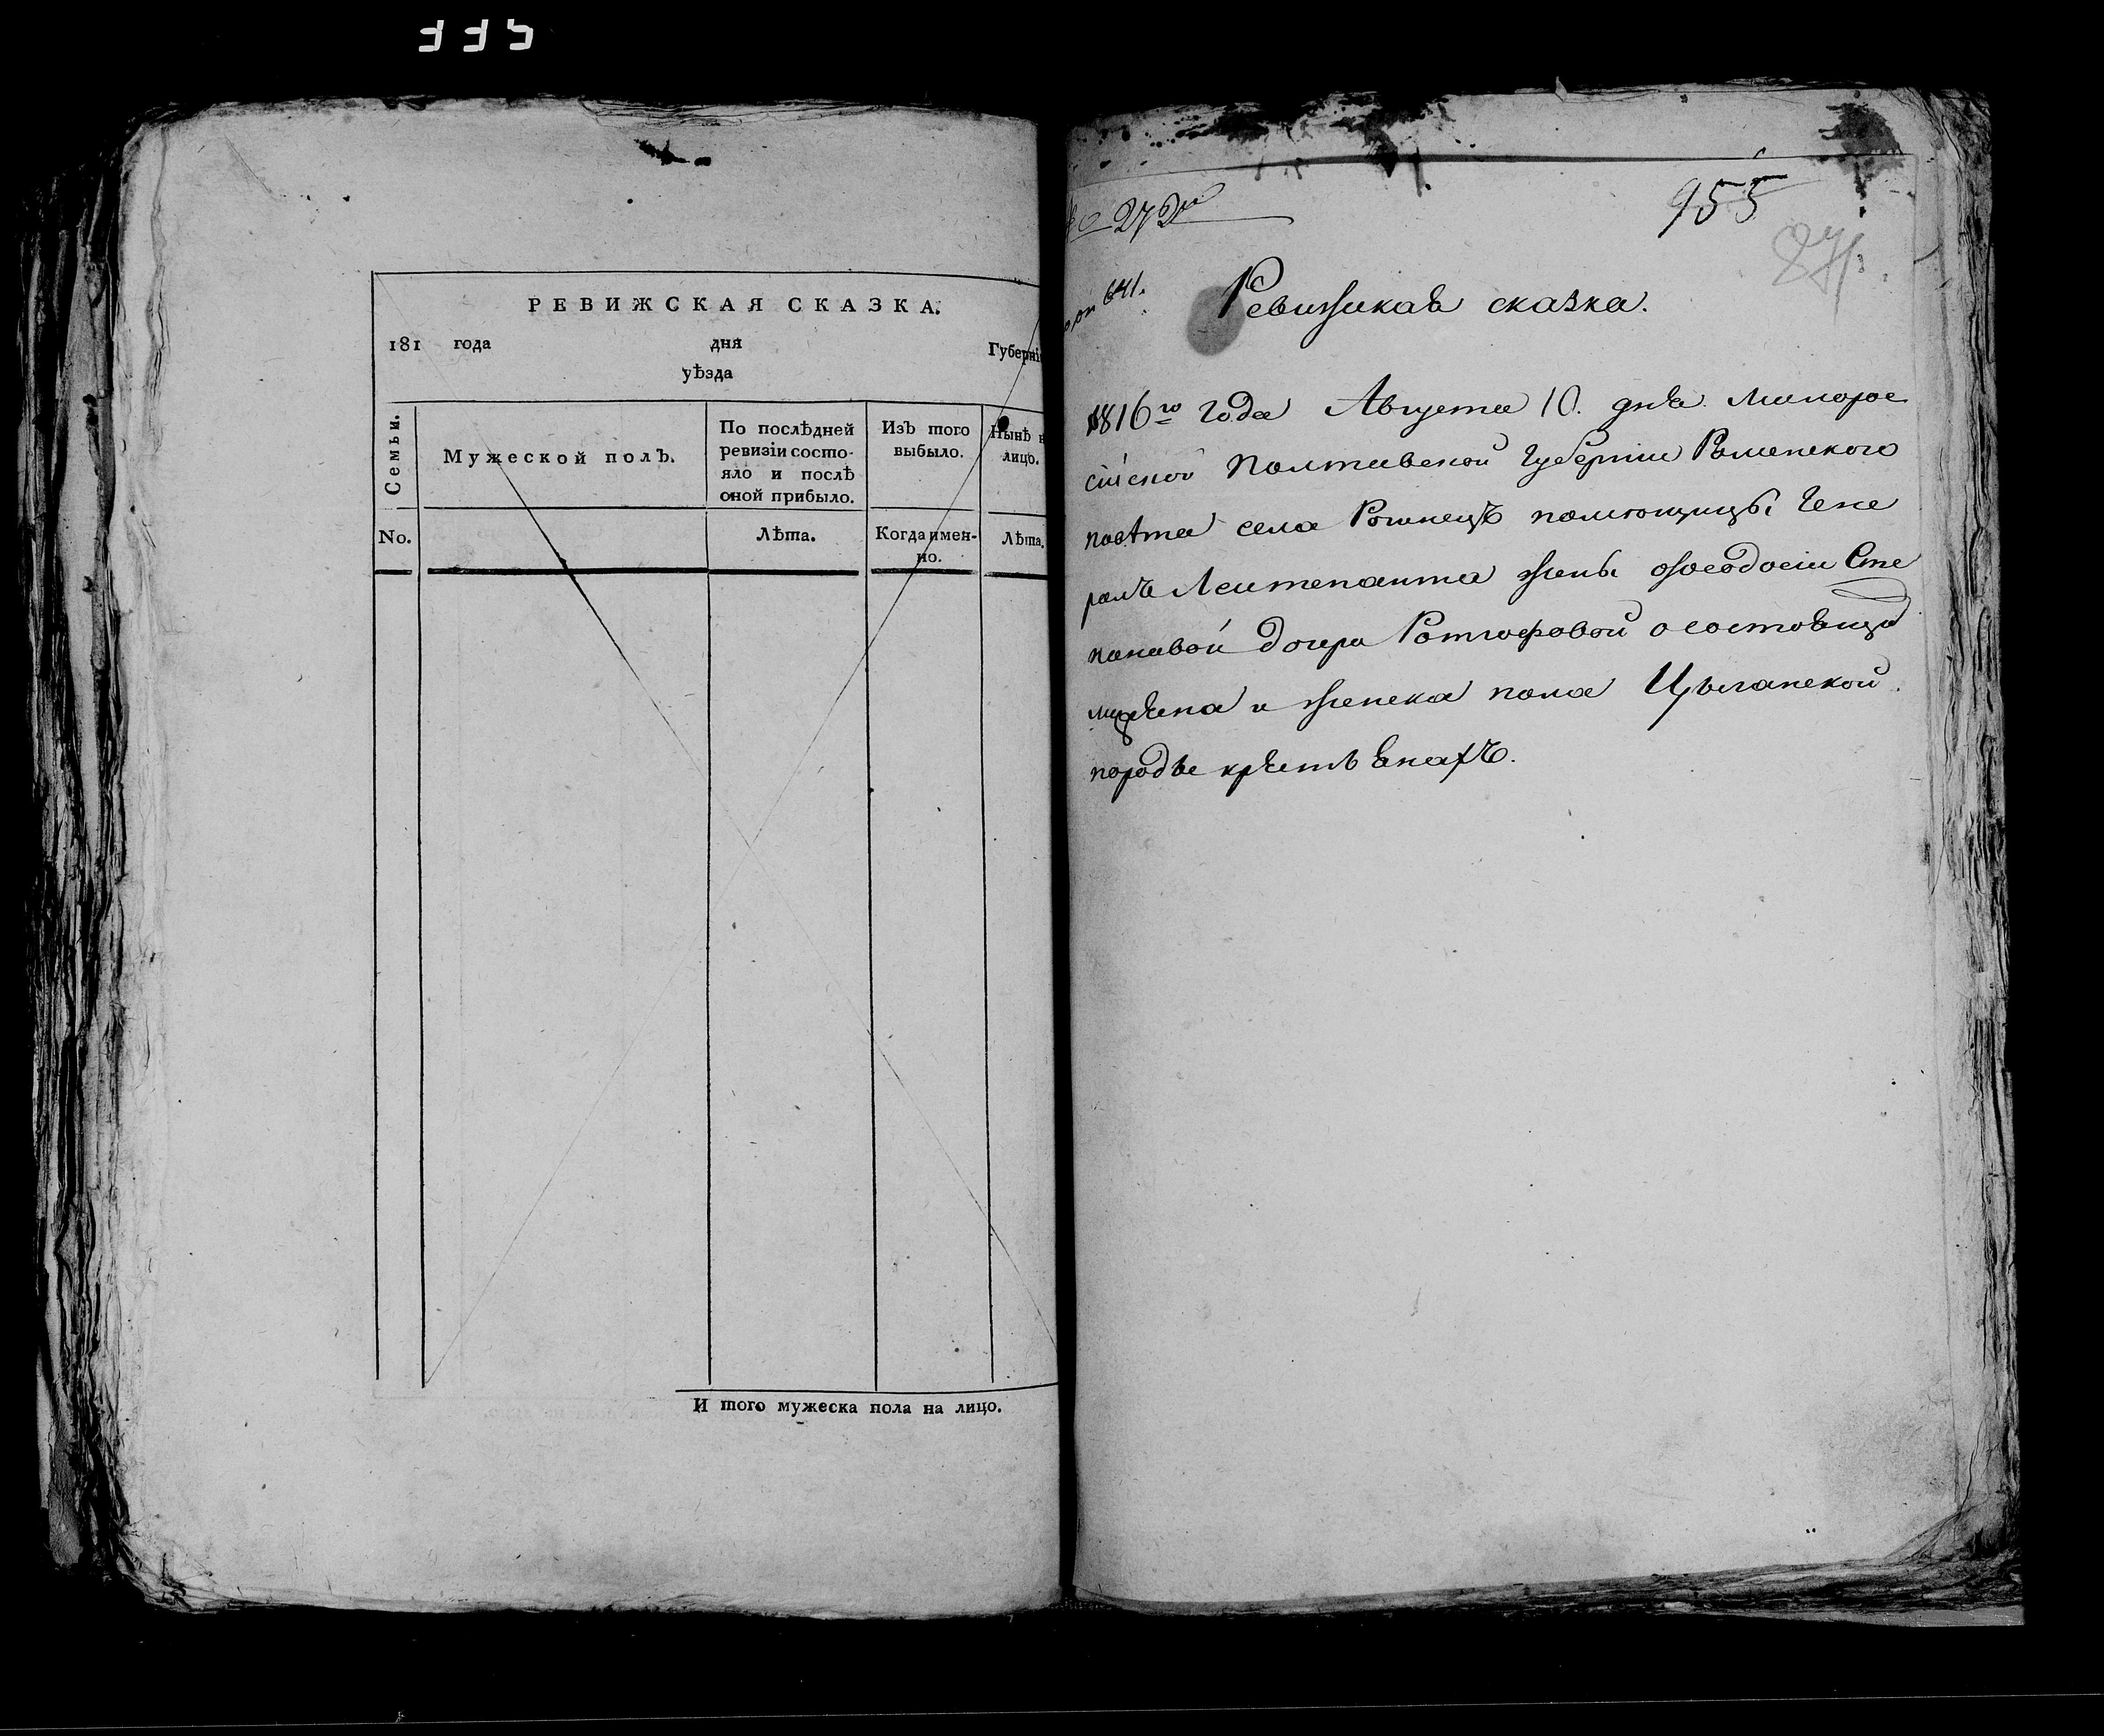 335
РЕВИЖСКАЯ СКАЗКА.
181 года дня Губерні
уѣзда
Семьи.
Мужеской полъ.
По послѣдней
ревизіи состо-
яло и послѣ
оной прибыло.
Изъ того
выбыло.
Нынѣ н
лицо.
No.
Лѣта.
Когда имен-
но.
Лѣта.
И того мужеска пола на лицо.
955
641.
Ревижская сказка.
1816го года Августа 10. дня Малорос
сійской Полтавской Губерніи Роменского
повѣта села помѣщицы Гене
ралъ Леитенанта жены Ѳеодосіи Сте
пановой дочери Ротгофовой о состоящих
мужеска и женска пола Цыганской
породы крѣстьянахъ.